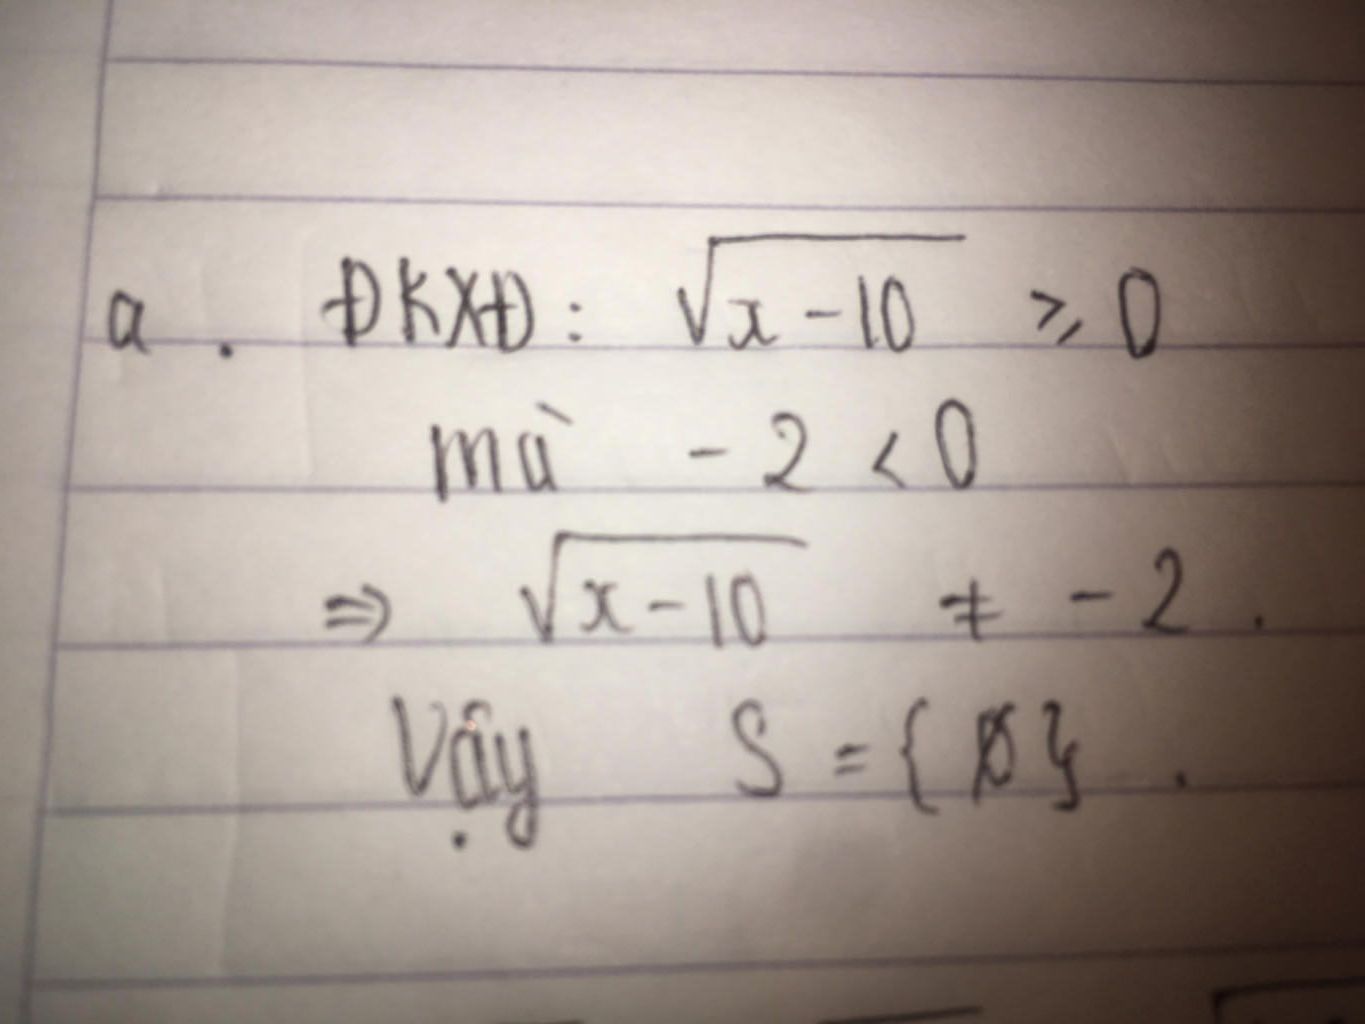 a. ĐKXĐ: √x-10 ≥ 0
mà -2 < 0
⇒ √x-10 ≠ -2.
Vậy S = {∅}.